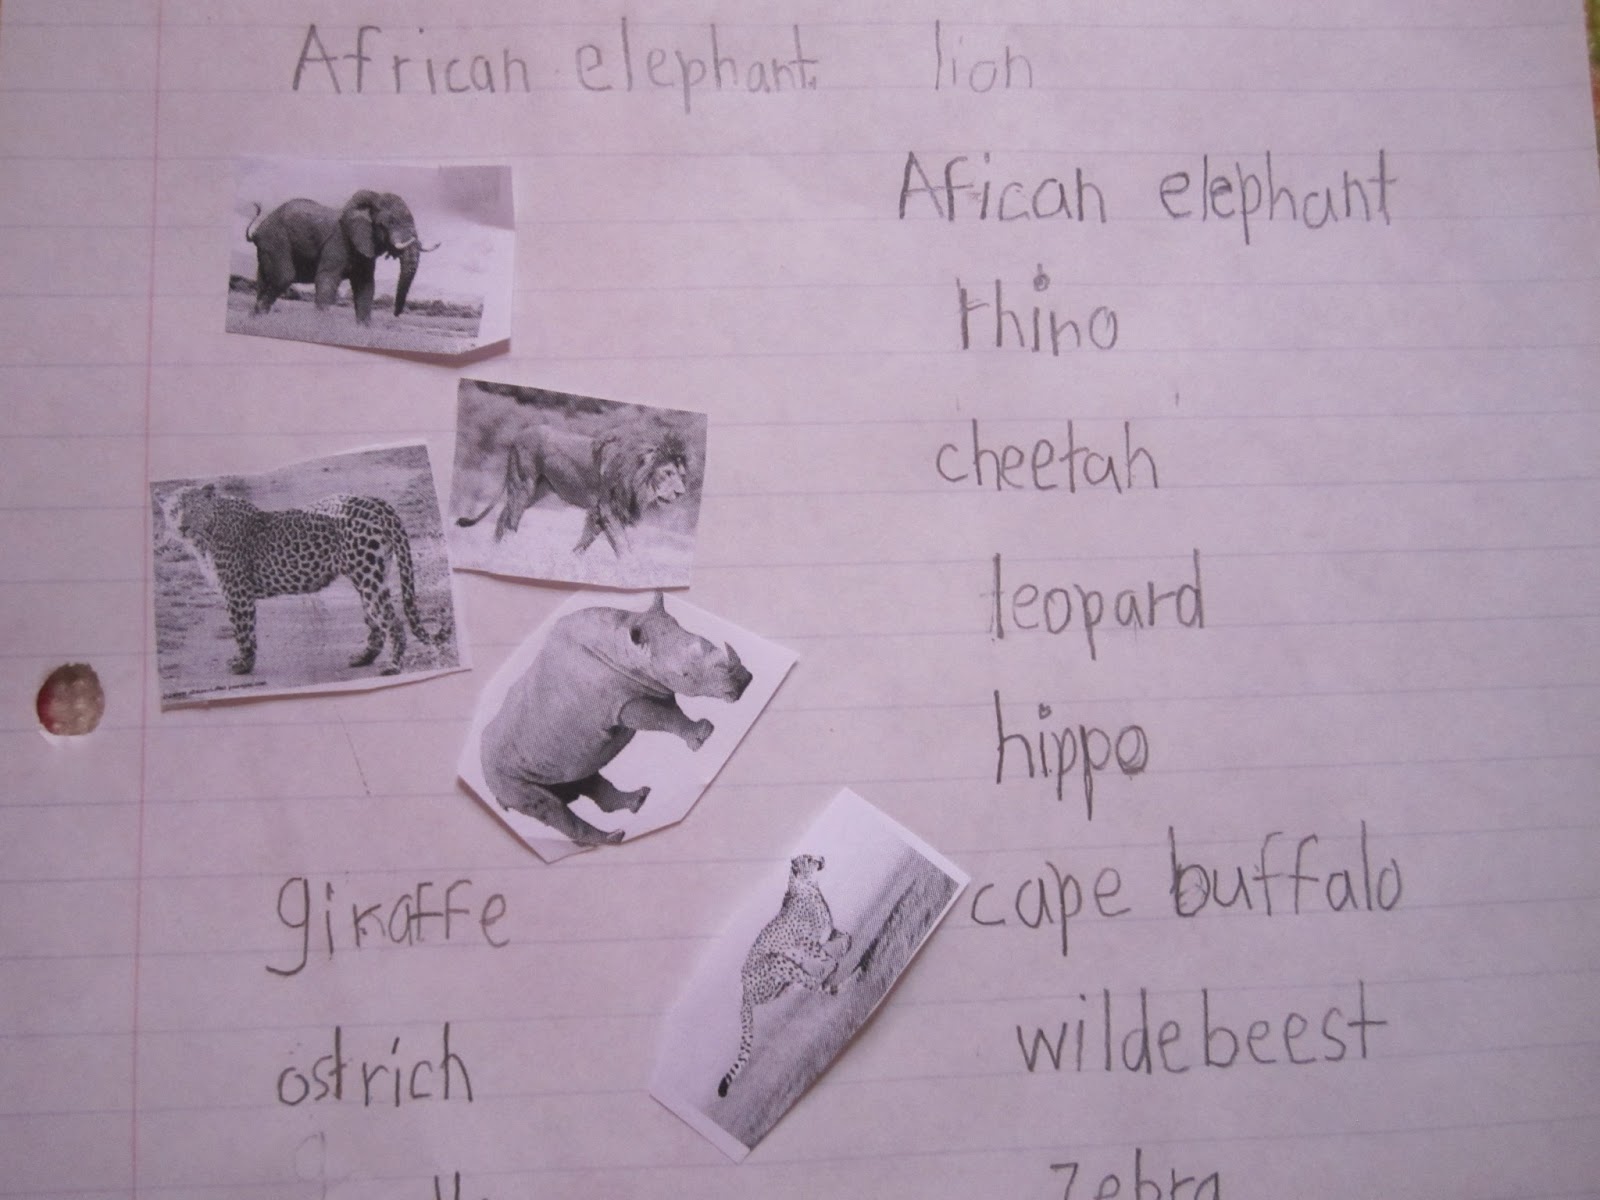 African elephant lion
Afican elephant
rhino
cheetah
leopard
hippo
giraffe
cape buffalo
ostrich
wildebeest
zebra